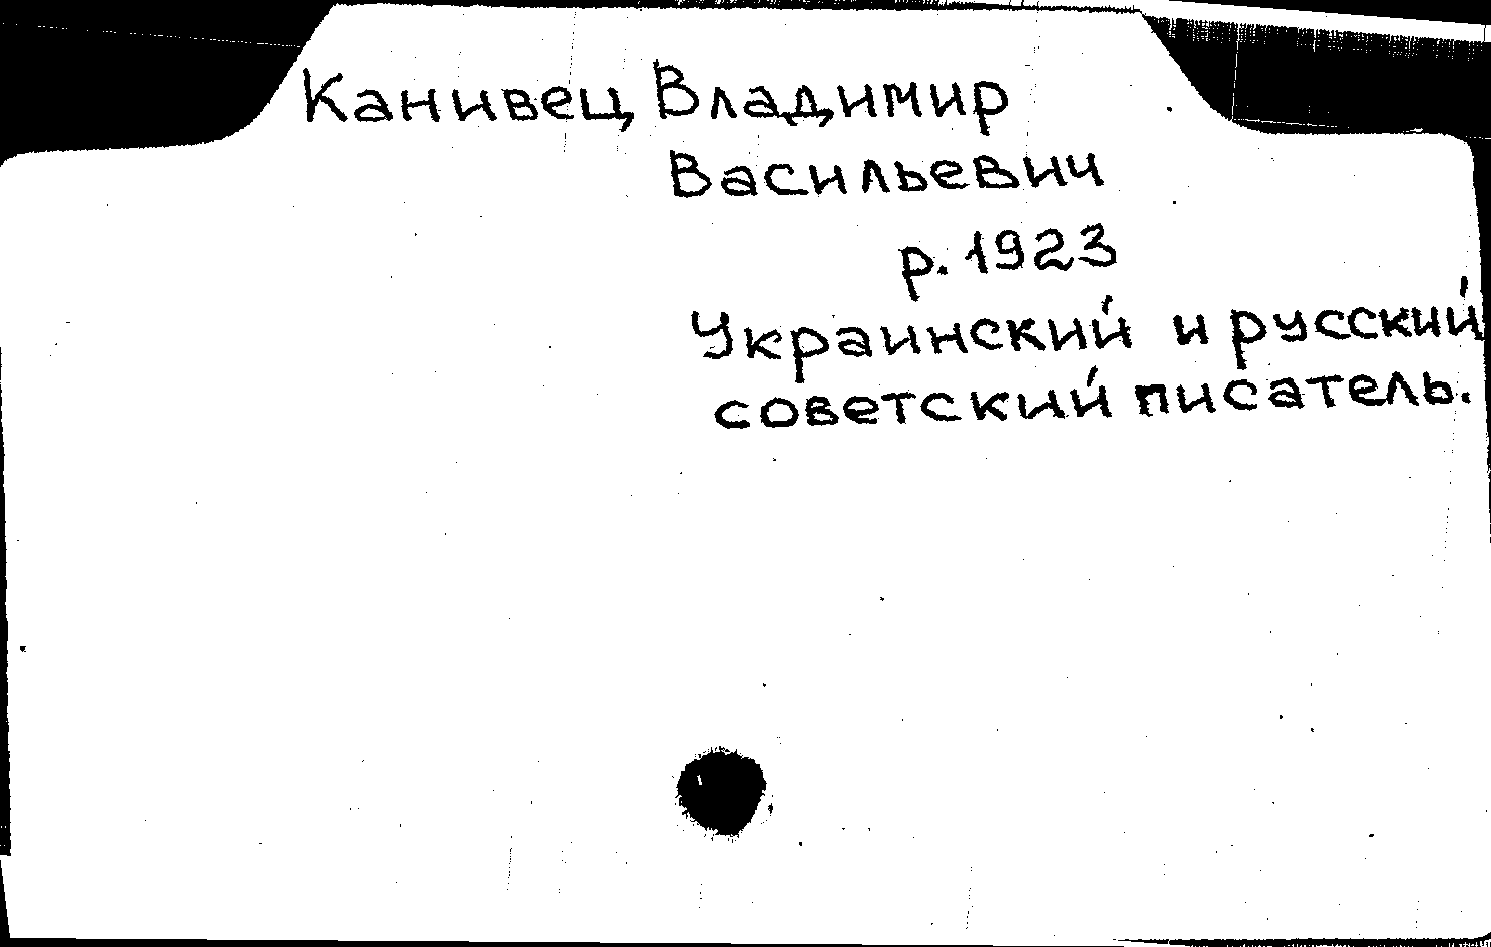 Канивец, Владимир
Васильевич
р. 1923
Украинский и русский
советский писатель.